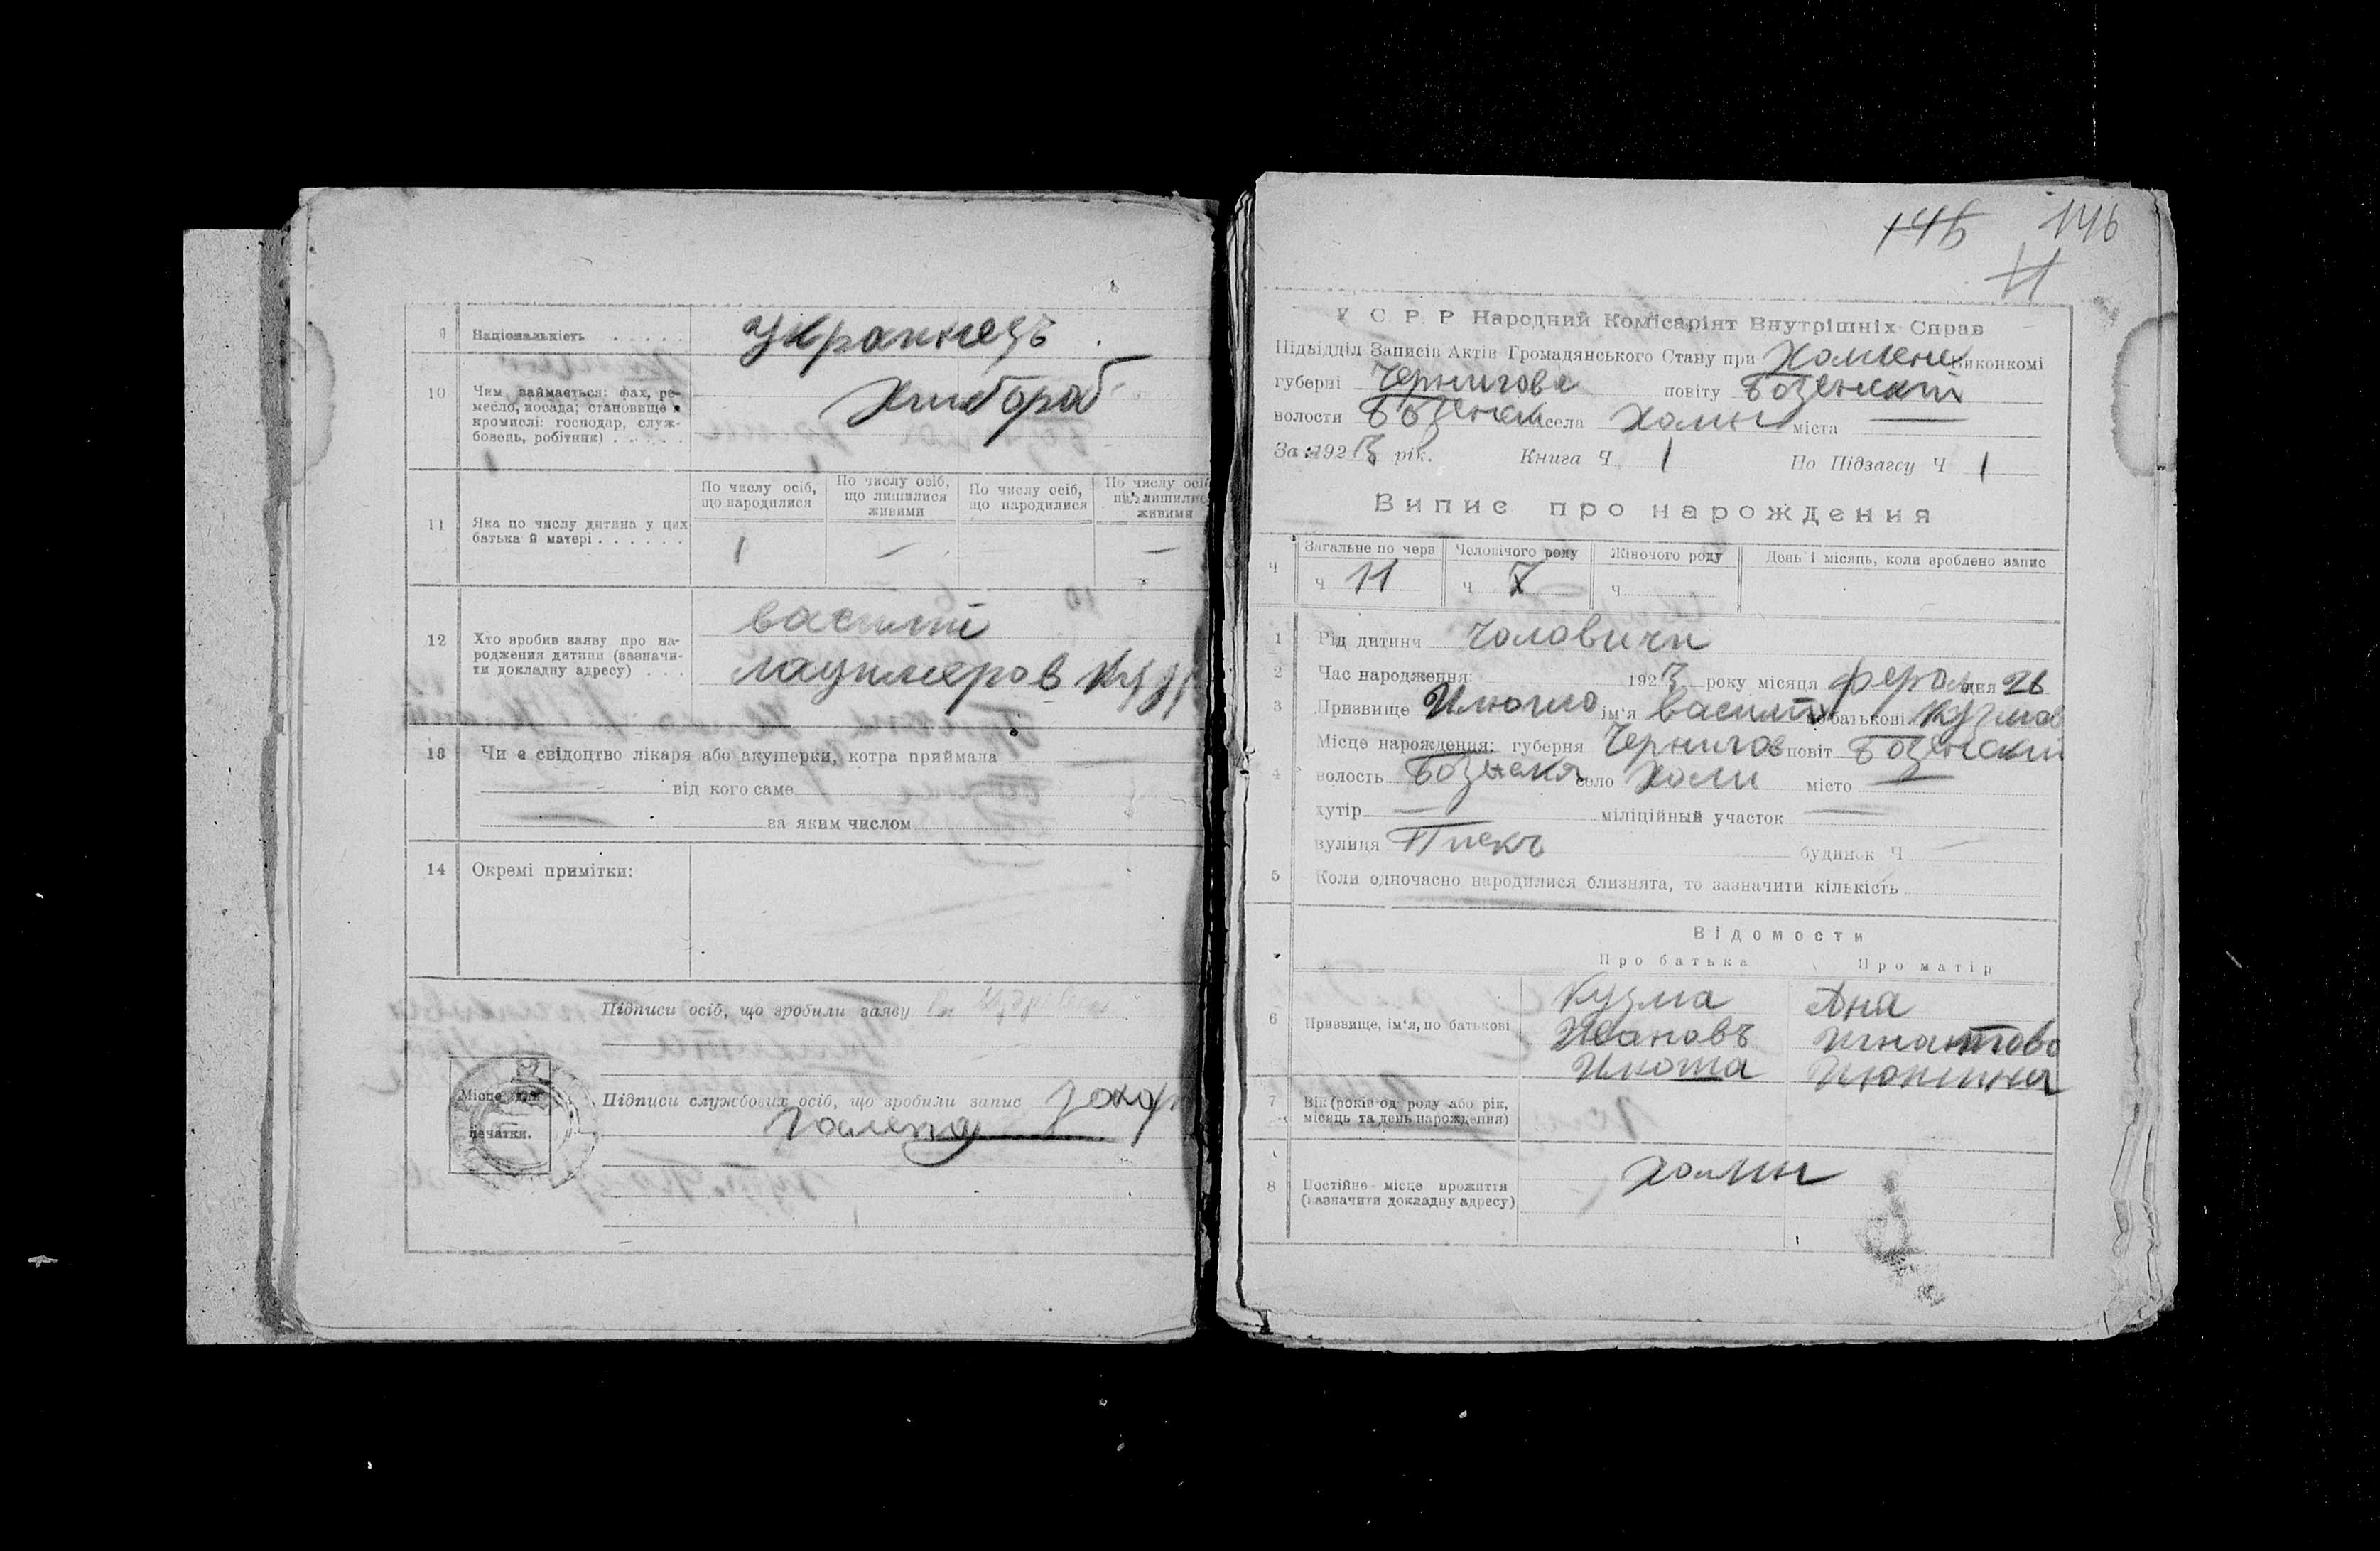 9 Національність украинецъ
10 Чим займається: фах, ре-
месло, посада; становище в
промислі: господар, служ-
бовець, робітник) Хлибороб
11 Яка по числу дитина у цих
батька й матері
По числу осіб, що народилися
По числу осіб, що лишилися живими
По числу осіб, що народилися
По числу осіб, що лишилися живими
1 — —
12 Хто зробив заяву про на-
родження дитини (зазначи-
ти докладну адресу)
василий
13 Чи є свідоцтво лікаря або акушерки, котра приймала
від кого саме
за яким числом
14 Окремі примітки:
Підписи осіб, що зробили заяву
Місце для
печатки.
Підписи службових осіб, що зробили запис
146 146
11
У С Р Р Народний Комісаріят Внутрішніх Справ
Підвідділ Записів Актів Громадянського Стану при виконкомі
губерні Чернигова повіту Бозенский
волости села Холмы міста —
За 1923 рік. Книга Ч 1 По Підзагсу Ч 1
Випис про нарождення
Ч Загальне по черв Человічого роду Жіночого роду День і місяць, коли зроблено запис
ч 11 ч 7 ч
1 Рід дитини Чоловичи
2 Час народження: 1923 року місяця дня 26
3 Призвище ім'я василий по батькові Кузмов
4 Місце нарождення: губерня Чернигов повіт Бозенский
волость Бозенска село Холми місто —
хутір — міліційный участок —
вулиця Пискъ будинок Ч —
5 Коли одночасно народилися близнята, то зазначити кількість
Відомости
Про батька Про матір
6 Призвище, ім'я, по батькові
Кузма Ана
Ивановъ Игнатова
7 Вік (років од роду або рік,
місяць та день нарождения)
8 Постійне місце прожиття
(зазначити докладну адресу) холми